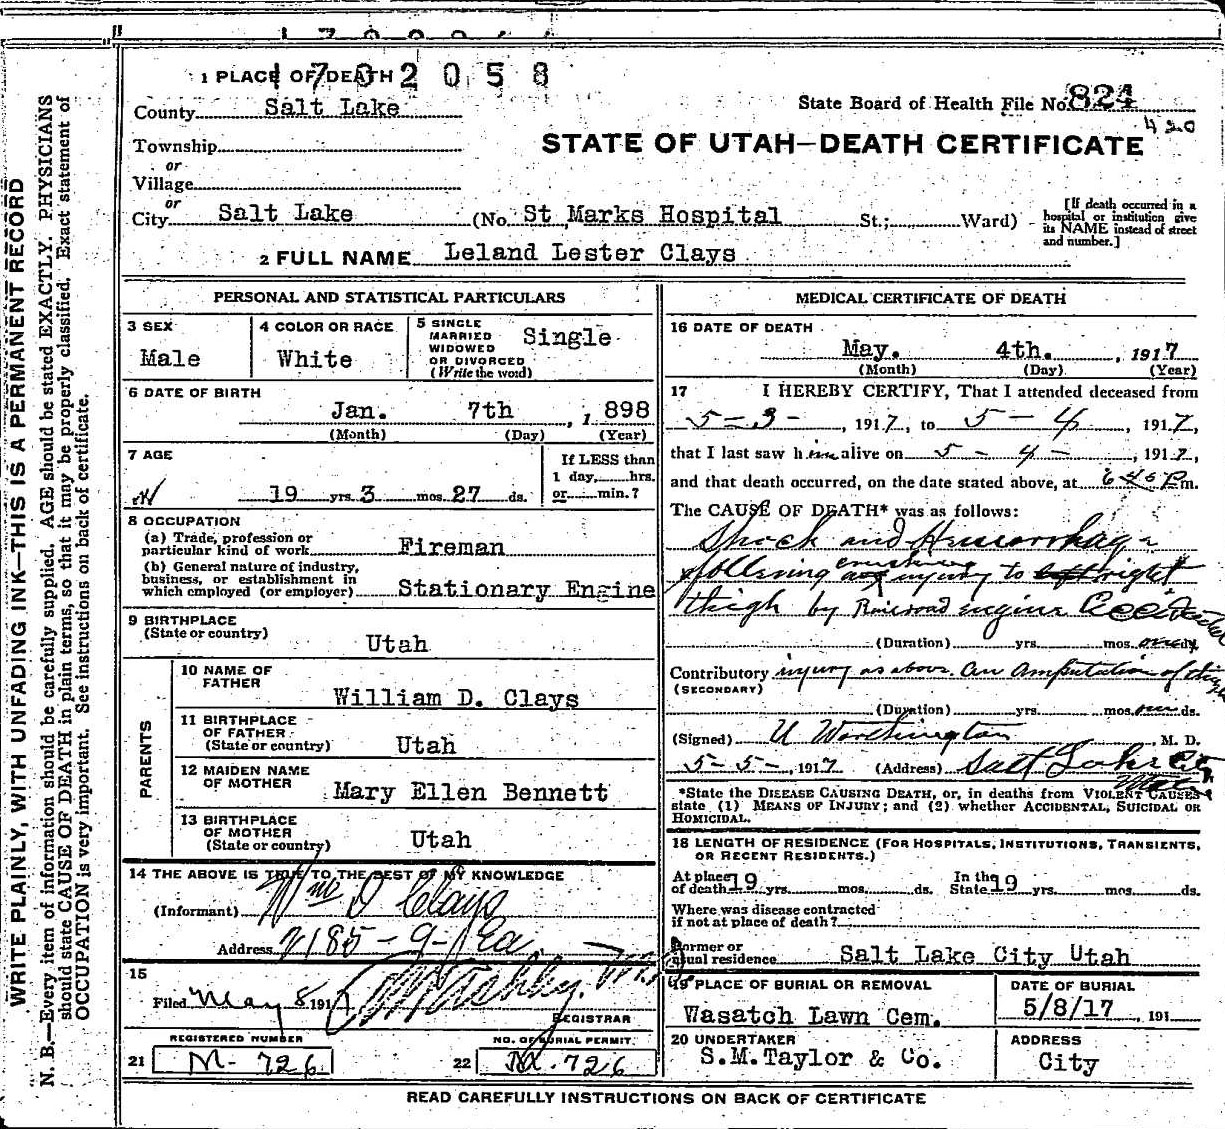 1 PLACE OF DEATH 1 7 0 2 0 5 8
County Salt Lake
State Board of Health File No. 824
420
Township
or
Village
or
STATE OF UTAH—DEATH CERTIFICATE
City Salt Lake (No. St Marks Hospital St.; Ward)
[If death occurred in a hospital or institution give its NAME instead of street and number.]
2 FULL NAME Leland Lester Clays
PERSONAL AND STATISTICAL PARTICULARS
3 SEX
Male
4 COLOR OR RACE
White
5 SINGLE
MARRIED
WIDOWED
OR DIVORCED
(Write the word)
Single
6 DATE OF BIRTH
Jan. 7th , 1898
(Month) (Day) (Year)
7 AGE
19 yrs. 3 mos. 27 ds.
If LESS than
1 day, hrs.
or min.?
8 OCCUPATION
(a) Trade, profession or
particular kind of work Fireman
(b) General nature of industry,
business, or establishment in
which employed (or employer) Stationary Engine
9 BIRTHPLACE
(State or country)
Utah
PARENTS
10 NAME OF
FATHER
William D. Clays
11 BIRTHPLACE
OF FATHER
(State or country) Utah
12 MAIDEN NAME
OF MOTHER
Mary Ellen Bennett
13 BIRTHPLACE
OF MOTHER
(State or country) Utah
14 THE ABOVE IS TRUE TO THE BEST OF MY KNOWLEDGE
(Informant) Wm D Clays
Address 2185-9-Ea.
15
Filed May 8 1917
REGISTRAR
REGISTERED NUMBER
21 M-726
NO. OF BURIAL PERMIT.
22 M-726
MEDICAL CERTIFICATE OF DEATH
16 DATE OF DEATH
May. 4th. , 1917
(Month) (Day) (Year)
17 I HEREBY CERTIFY, That I attended deceased from
5-3- , 1917, to 5-4 , 1917,
that I last saw him alive on 5-4- , 1917,
and that death occurred, on the date stated above, at 645 P.m.
The CAUSE OF DEATH* was as follows:
Shock and Hemorrhage
following crushing injury to left right
thigh by Railroad engine Accidental
(Duration) yrs. mos. one ds.
Contributory injury as above. An Amputation of thigh
(SECONDARY)
(Duration) yrs. mos. one ds.
(Signed) U Worthington , M. D.
5-5- , 1917 (Address) Salt Lake City
Utah
*State the DISEASE CAUSING DEATH, or, in deaths from VIOLENT CAUSES
state (1) MEANS OF INJURY; and (2) whether ACCIDENTAL, SUICIDAL OR
HOMICIDAL.
18 LENGTH OF RESIDENCE (FOR HOSPITALS, INSTITUTIONS, TRANSIENTS,
OR RECENT RESIDENTS.)
At place
of death 19 yrs. mos. ds.
In the
State 19 yrs. mos. ds.
Where was disease contracted
if not at place of death?
Former or
usual residence Salt Lake City Utah
19 PLACE OF BURIAL OR REMOVAL
Wasatch Lawn Cem.
DATE OF BURIAL
5/8/17 , 191
20 UNDERTAKER
S.M.Taylor & Co.
ADDRESS
City
READ CAREFULLY INSTRUCTIONS ON BACK OF CERTIFICATE
WRITE PLAINLY, WITH UNFADING INK—THIS IS A PERMANENT RECORD
N. B.—Every item of information should be carefully supplied. AGE should be stated EXACTLY. PHYSICIANS
should state CAUSE OF DEATH in plain terms, so that it may be properly classified. Exact statement of
OCCUPATION is very important. See instructions on back of certificate.